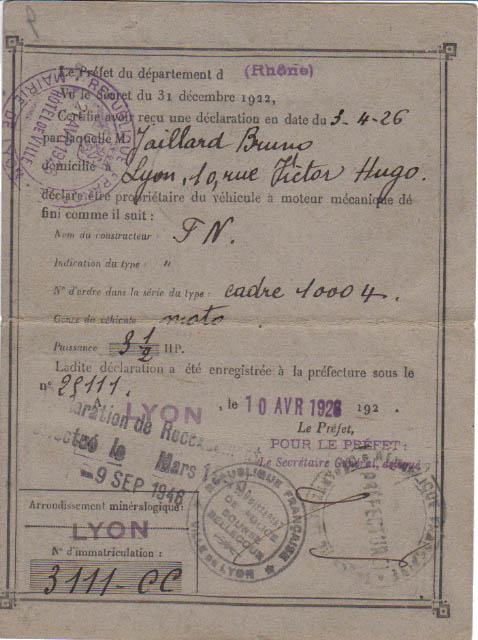 Le Préfet du département d (Rhône)
Vu le décret du 31 décembre 1922,
Certifie avoir reçu une déclaration en date du 3-4-26
par laquelle M. Jaillard Bruno
domicilié à Lyon, 10, rue Victor Hugo.
déclare être propriétaire du véhicule à moteur mécanique dé
fini comme il suit :
Nom du constructeur : FN.
Indication du type : "
N° d'ordre dans la série du type : cadre 10004.
Genre de véhicule moto
Puissance 3 1/2 HP.
Ladite déclaration a été enregistrée à la préfecture sous le
n° 29111.
A LYON, le 10 AVR 1926 192 .
Le Préfet,
POUR LE PRÉFET:
Le Secrétaire Général, délégué
aration de Recense
le Mars 1
-9 SEP 1946
Arrondissement minéralogique :
LYON
N° d'immatriculation :
3111-CC
RÉPUBLIQUE FRANÇAISE
VILLE DE LYON
DE POLICE
BELLECOUR
HÔTEL DE VILLE
MAIRIE DE
PRÉFECTURE